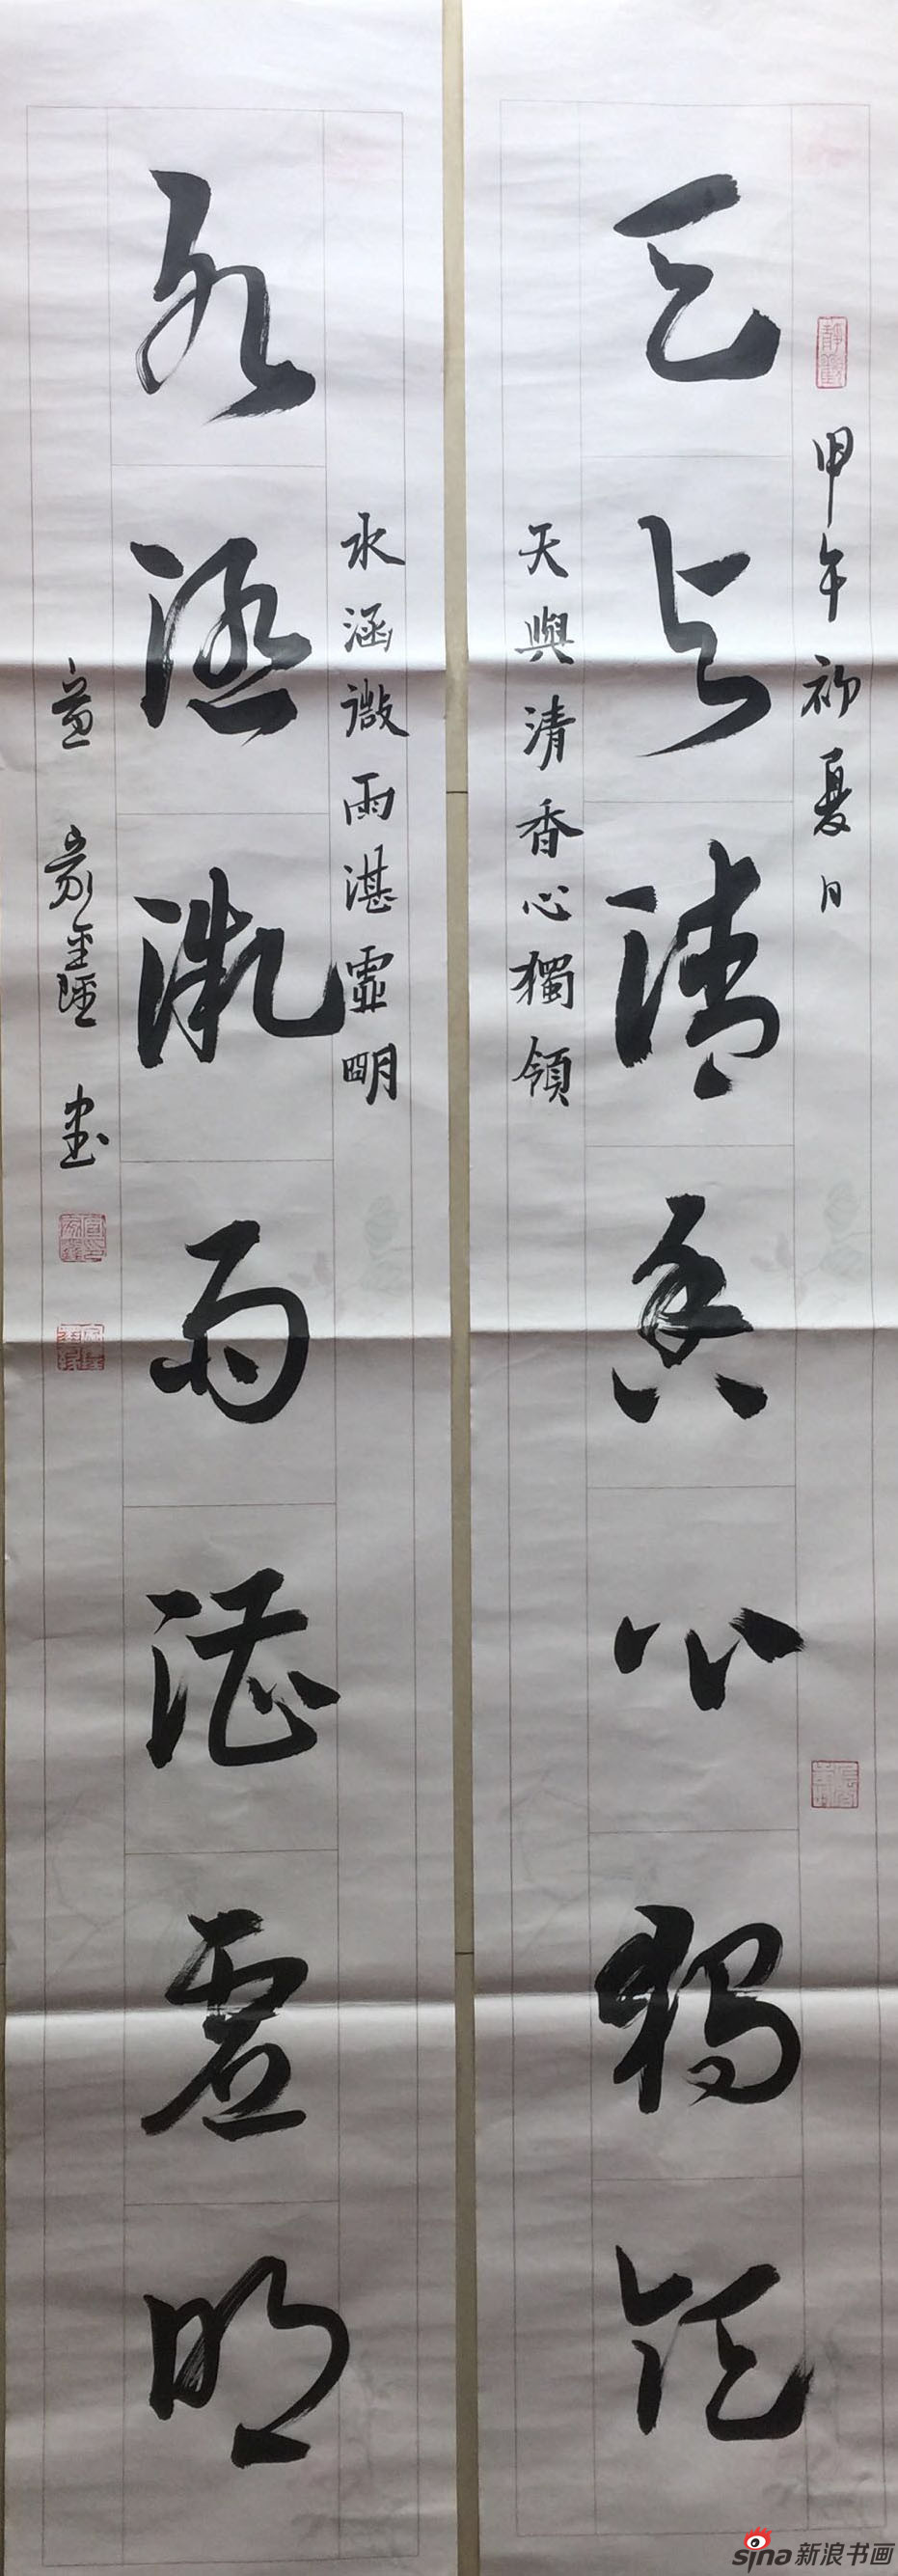 甲午初夏月
天与清香心獨领
天與清香心獨領
水涵微雨湛虚明
水涵微雨湛虛明
sina新浪书画